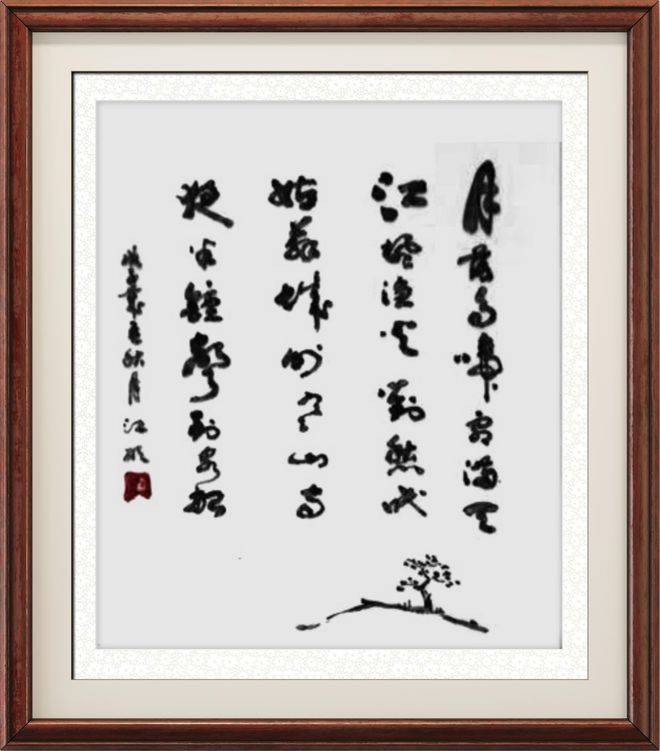 月落烏啼霜滿天
江楓漁火對愁眠
姑蘇城外寒山寺
夜半鐘聲到客船
子歲秋月 江